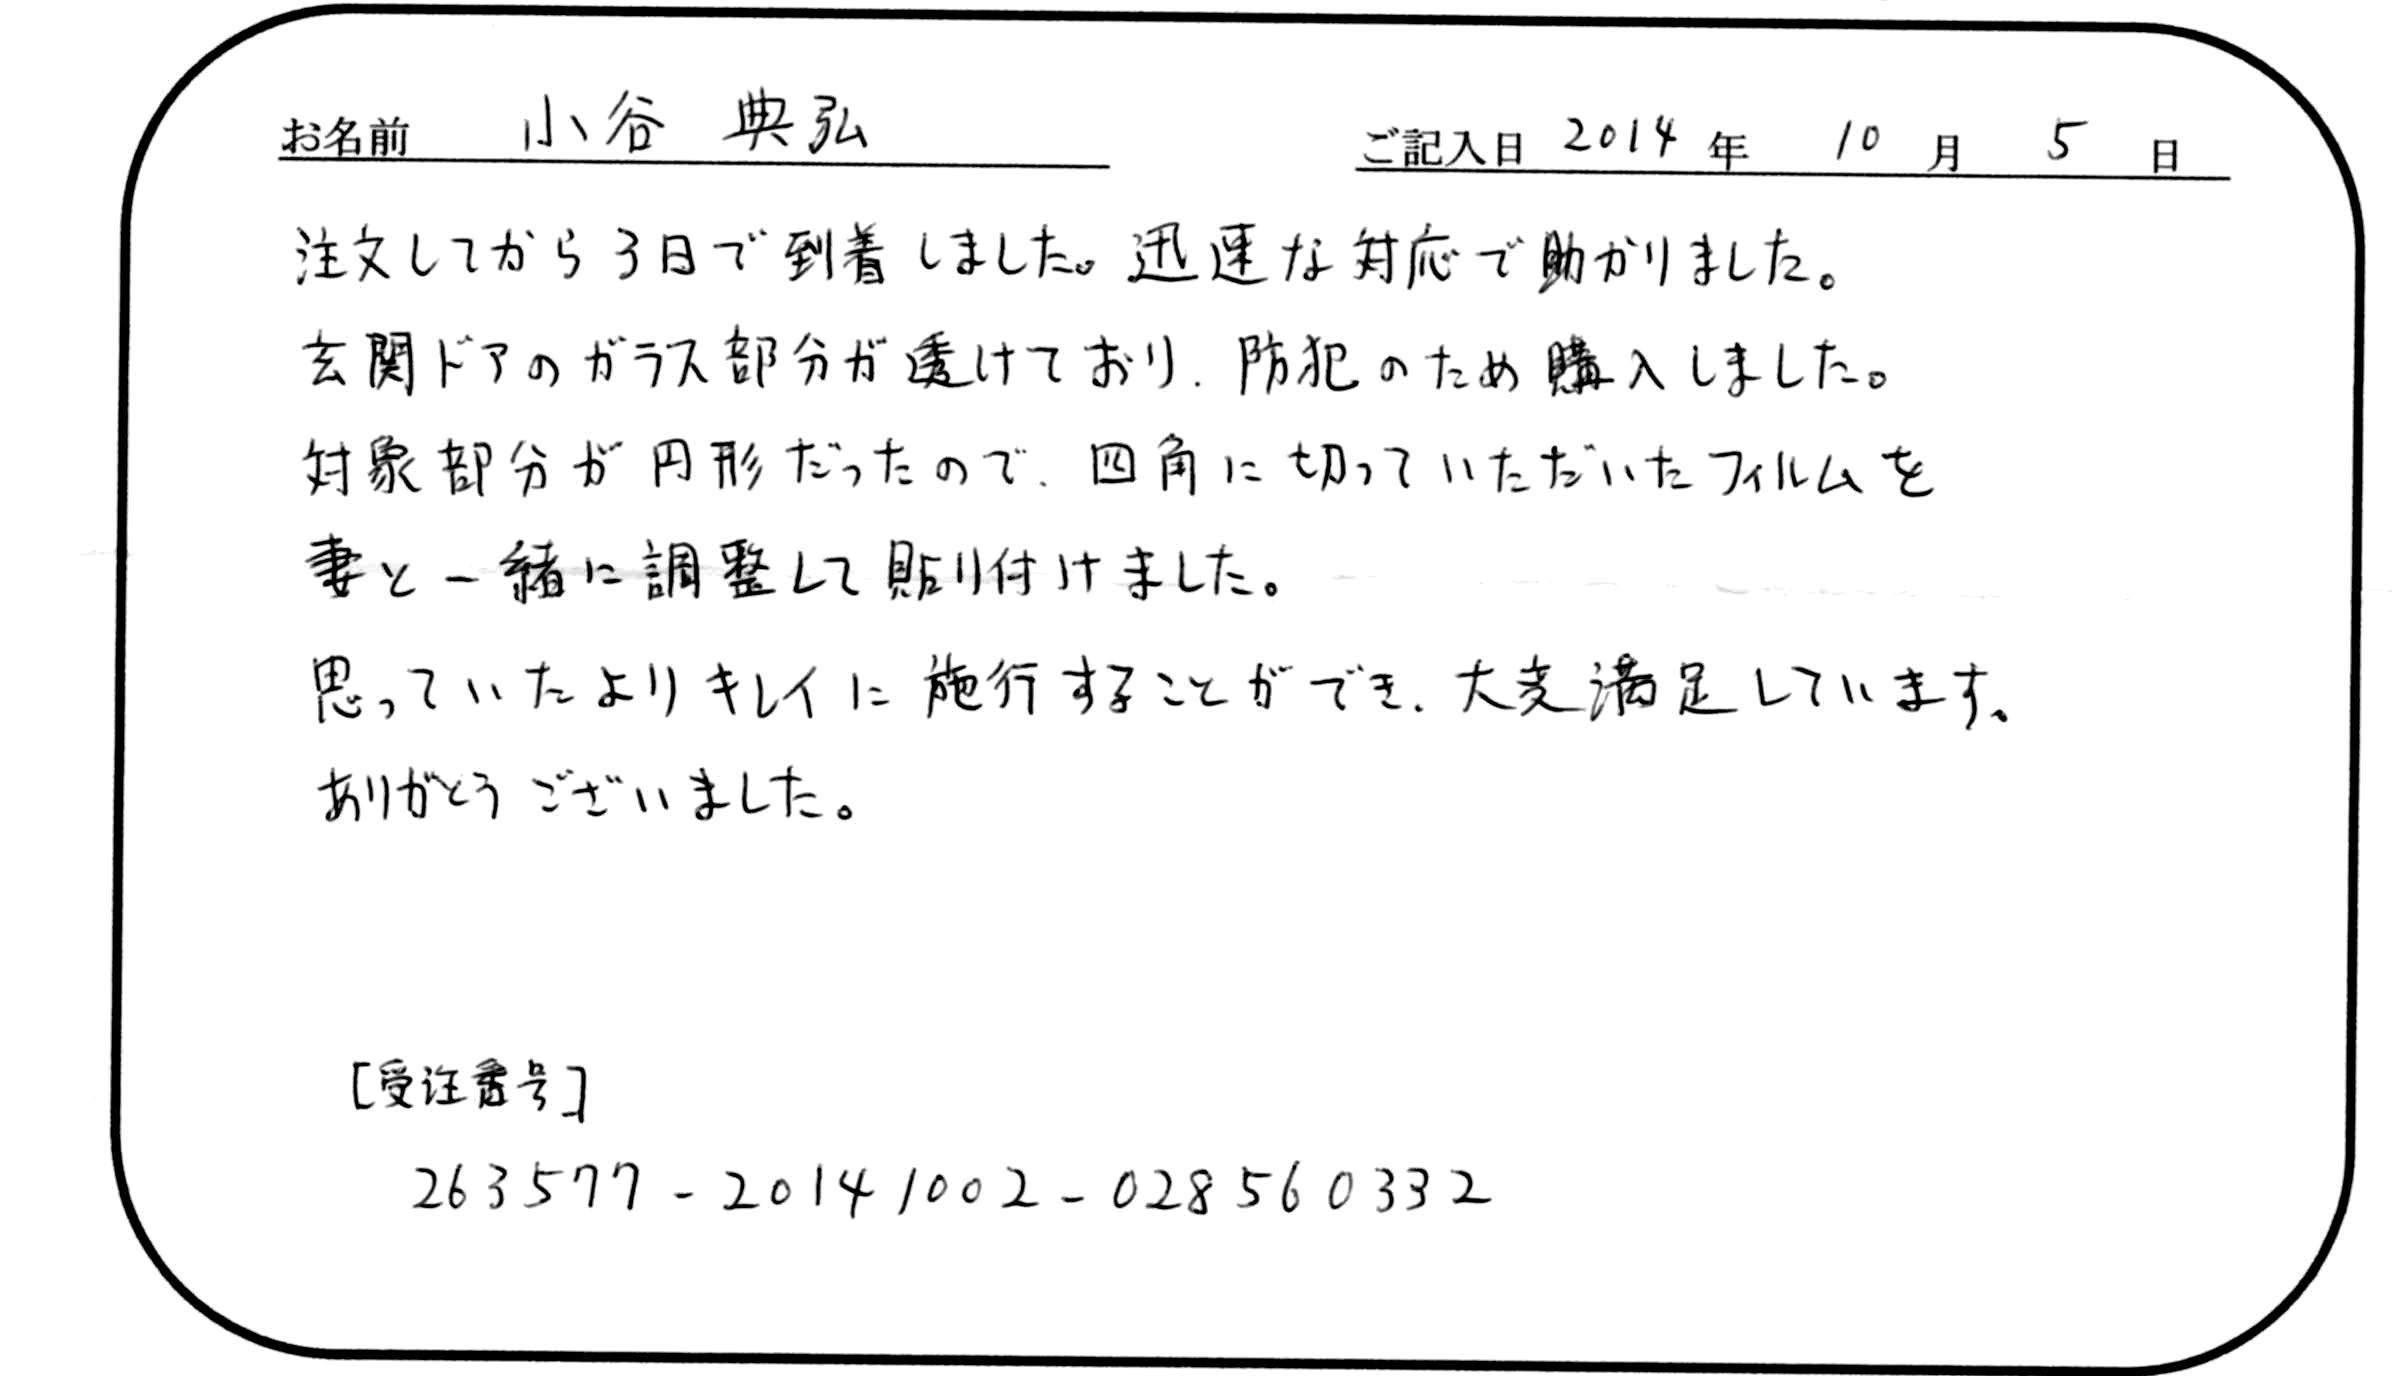 お名前 小谷 典弘 ご記入日 2014 年 10 月 5 日
注文してから3日で到着しました。迅速な対応で助かりました。
玄関ドアのガラス部分が透けており、防犯のため購入しました。
対象部分が円形だったので、四角に切っていただいたフィルムを
妻と一緒に調整して貼り付けました。
思っていたよりキレイに施行することができ、大変満足しています。
ありがとうございました。
[受注番号]
263577-20141002-028560332